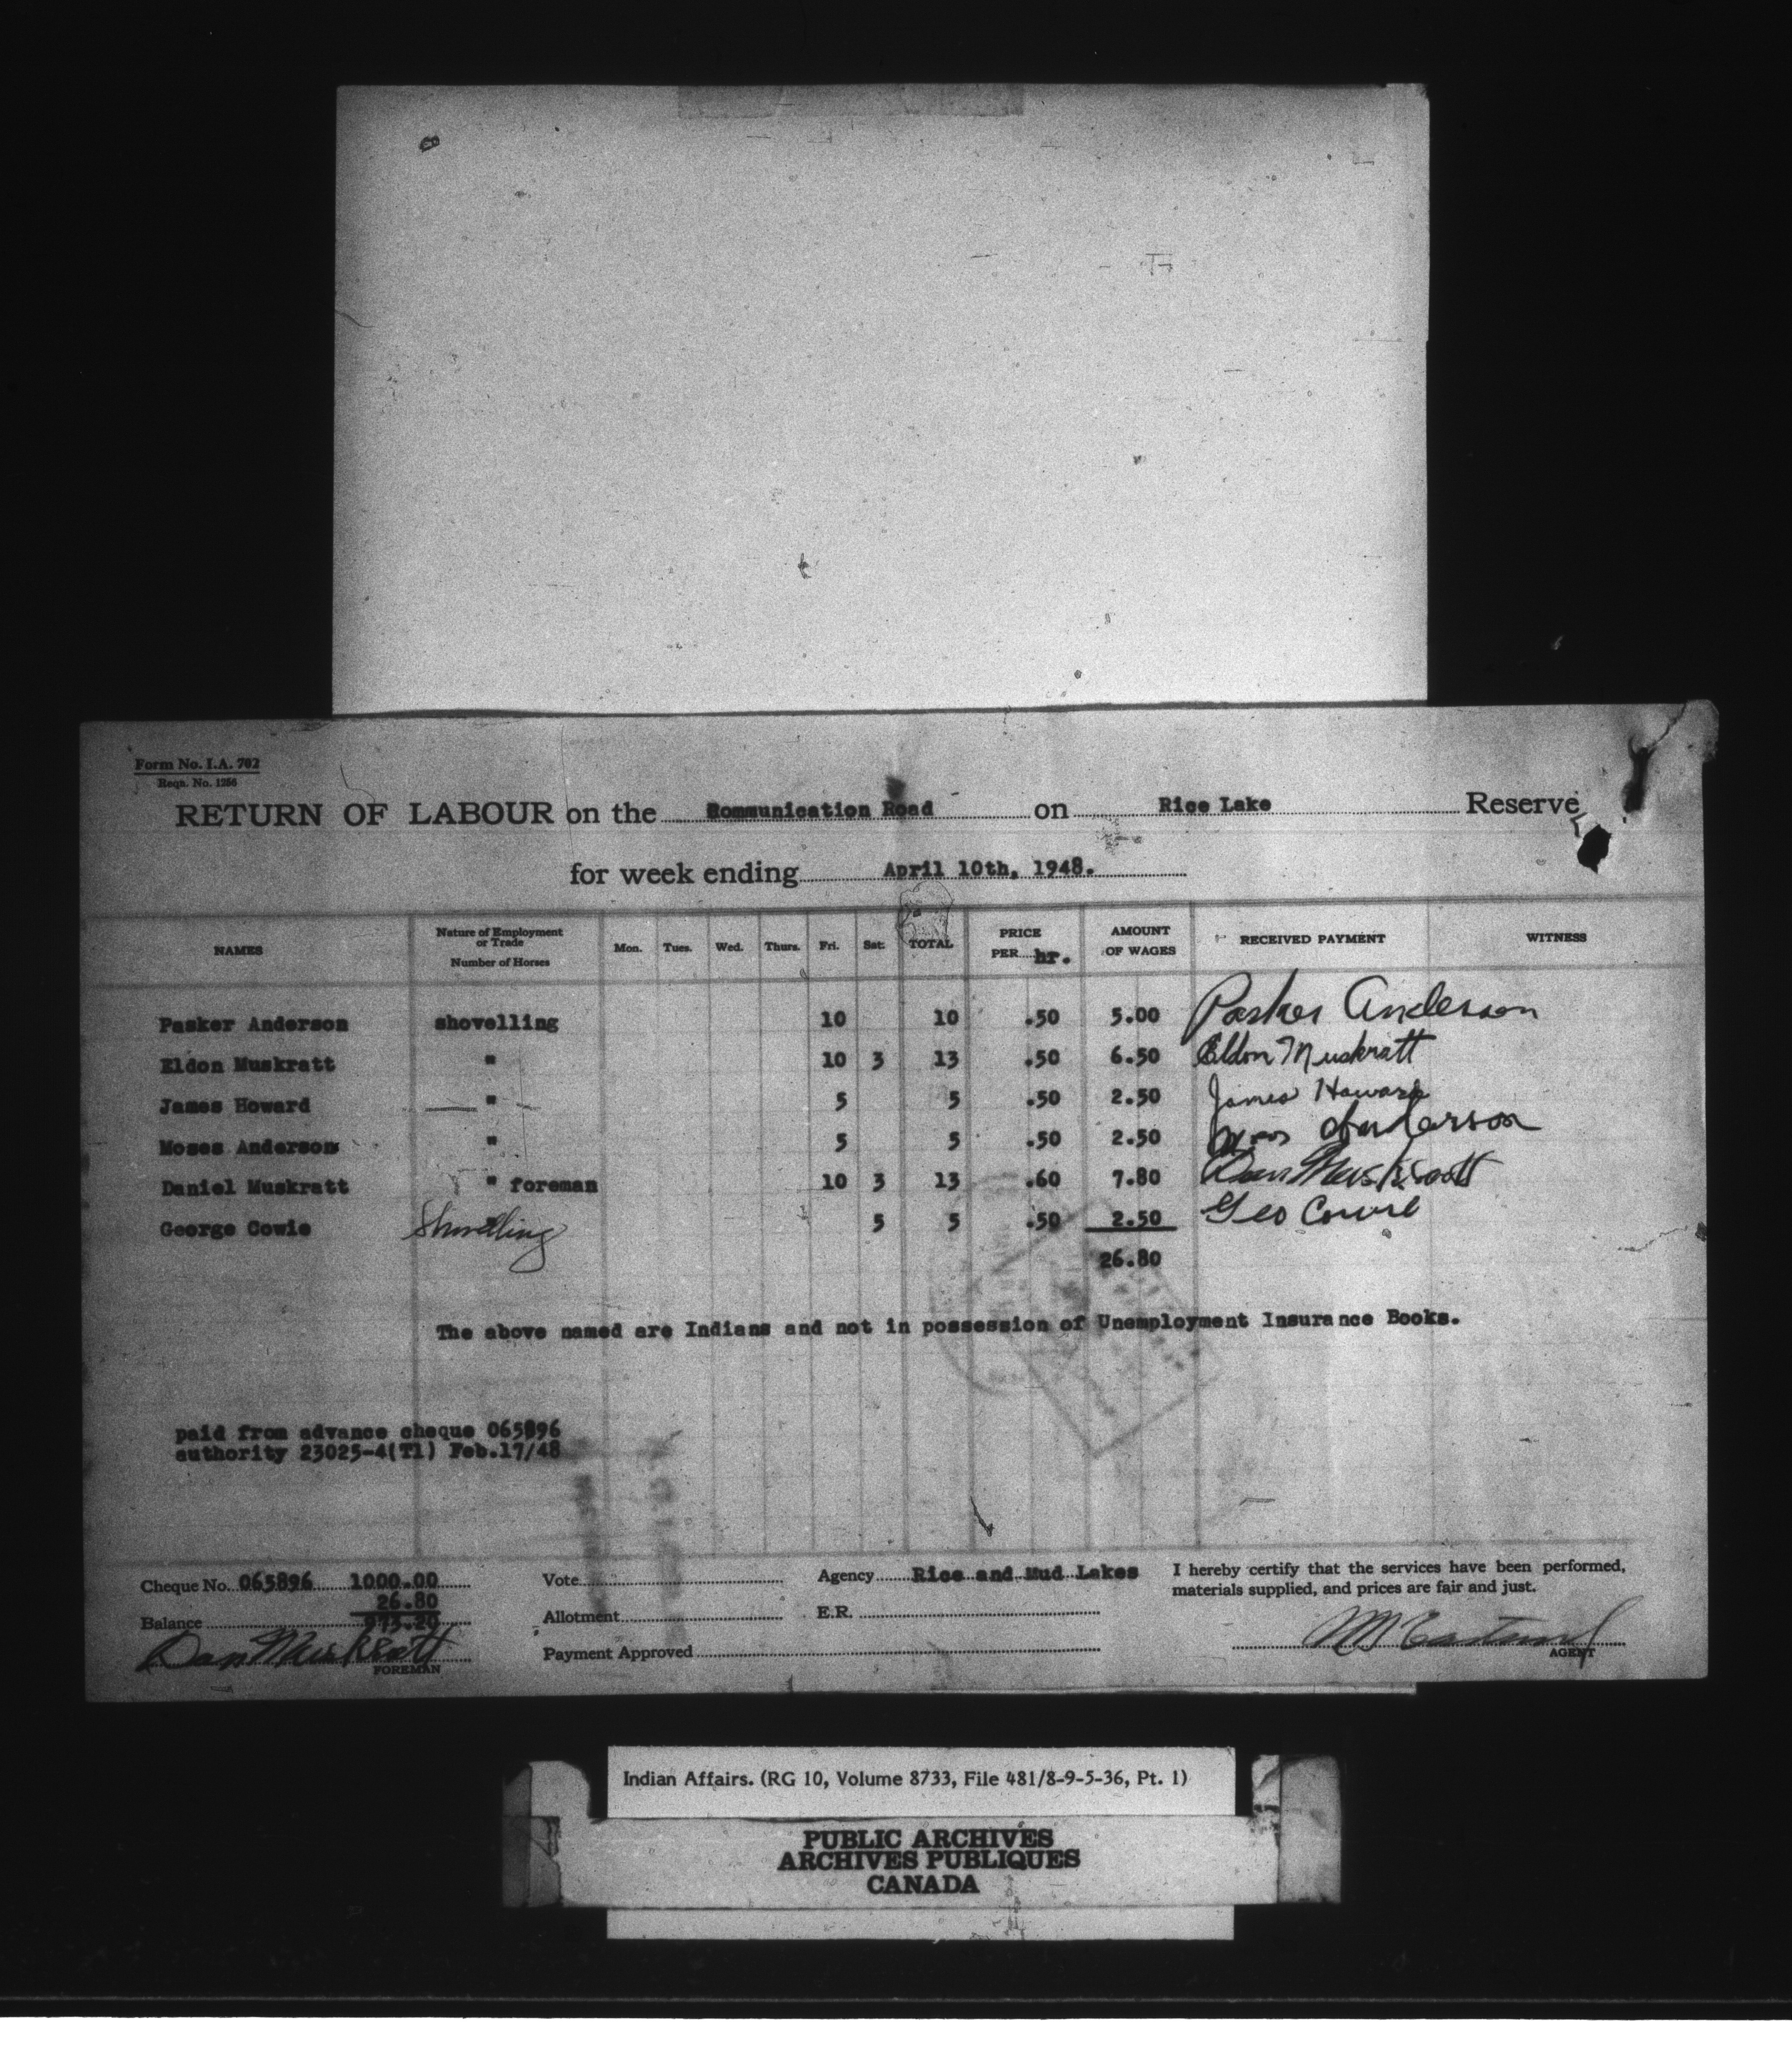 Form No. I.A. 702
Reqn. No. 1256
RETURN OF LABOUR on the Communication Road on Rice Lake Reserve
for week ending April 10th, 1948.
NAMES Nature of Employment or Trade Number of Horses Mon. Tues. Wed. Thurs. Fri. Sat. TOTAL PRICE PER hr. AMOUNT OF WAGES RECEIVED PAYMENT WITNESS
Pasker Anderson shovelling 10 10 .50 5.00 Pasker Anderson
Eldon Muskratt " 10 3 13 .50 6.50 Eldon Muskratt
James Howard " 5 5 .50 2.50 James Howard
Moses Anderson " 5 5 .50 2.50 Anderson
Daniel Muskratt " foreman 10 3 13 .60 7.80 Dan Muskratt
George Cowie Shovelling 5 5 .50 2.50 Geo Cowie
26.80
The above named are Indians and not in possession of Unemployment Insurance Books.
paid from advance cheque 065896
authority 23025-4(T1) Feb.17/48
Cheque No. 065896 1000.00 Vote Agency Rice and Mud Lakes I hereby certify that the services have been performed,
26.80 materials supplied, and prices are fair and just.
Balance 973.20 Allotment E.R.
Dan Muskratt Payment Approved
FOREMAN AGENT
Indian Affairs. (RG 10, Volume 8733, File 481/8-9-5-36, Pt. 1)
PUBLIC ARCHIVES
ARCHIVES PUBLIQUES
CANADA